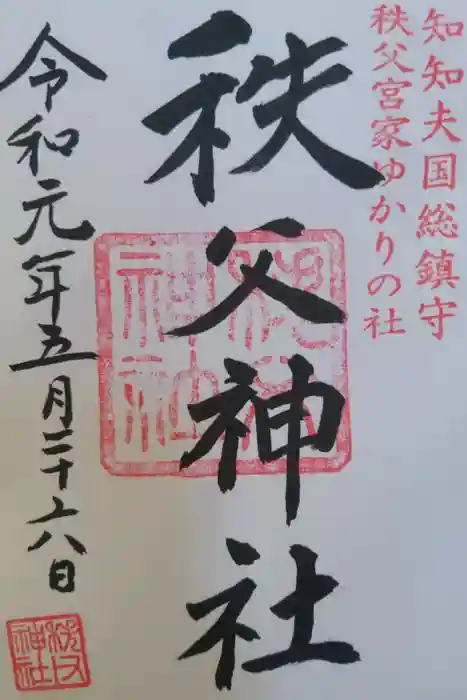 知知夫国総鎮守
秩父宮家ゆかりの社
秩父神社
令和元年五月二十六日
秩父神社
秩父神社